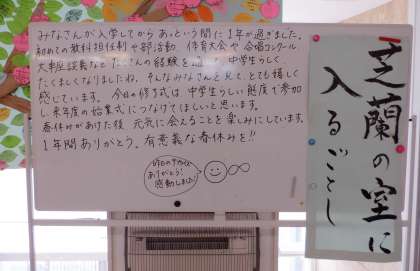 みなさんが入学してからあっという間に1年が過ぎました。
初めての教科担任制や部活動、体育大会や合唱コンクール
大事な談義などたくさんの経験を通 中学生らしく
たくましくなりましたね。そんなみなさんを見て、とても嬉しく
感じています。 今日の修了式は中学生らしい態度で参加
し来年度の始業式につなげてほしいと思います。
春休みがあけた後 元気に会えることを楽しみにしています。
1年間ありがとう。有意義な春休みを!!
昨日の
ありがとう!
感動しました!
芝蘭の室に
入るごとし